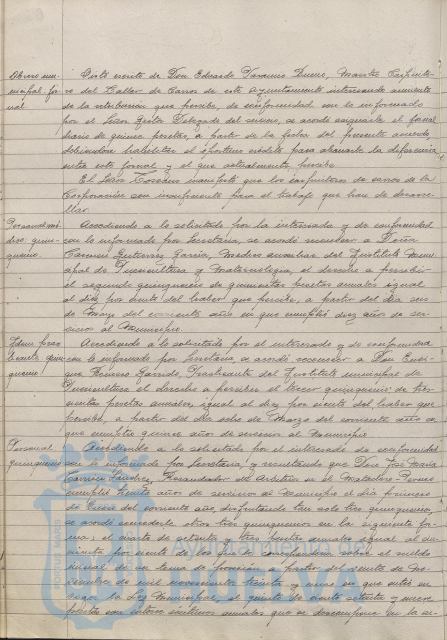 Obrero mu-
nicipal. jor-
nal
Visto escrito de Don Eduardo Bueno, Maestro Carpinte-
ro del Taller de Carros de este Ayuntamiento interesando aumento
de la retribución que percibe, de conformidad con lo informado
por el Señor Gestor Delegado del servicio, se acordó asignarle el jornal
diario de quince pesetas, a partir de la fecha del presente acuerdo,
debiéndose habilitar el oportuno crédito para abonarle la diferencia
entre este jornal y el que actualmente percibe.
El Señor manifestó que los carpinteros de carros de la
Corporación son insuficientes para el trabajo que han de desarro-
llar.
Personal mé-
dico quin-
quenio.
Accediendo a lo solicitado por la interesada y de conformidad
con lo informado por Secretaría, se acordó reconocer a Doña
Carmen Gutierrez García, Médico auxiliar del Instituto Muni-
cipal de Puericultura y Maternología, el derecho a percibir
el segundo quinquenio de quinientas pesetas anuales igual
al diez por ciento del haber que percibe, a partir del día seis
de Mayo del corriente año en que cumplió diez años de ser-
vicios al Municipio.
Idem prac-
ticante quin-
quenio
Accediendo a lo solicitado por el interesado y de conformidad
con lo informado por Secretaría, se acordó reconocer a Don Enri-
que Garrido, Practicante del Instituto municipal de
Puericultura el derecho a percibir el tercer quinquenio de tres-
cientas pesetas anuales, igual al diez por ciento del haber que
percibe, a partir del día ocho de Marzo del corriente año en
que cumplió quince años de servicios al Municipio.
Personal
quinquenio
Accediendo a lo solicitado por el interesado de conformidad
con lo informado por Secretaría, y resultando que Don José María
Carrión Sánchez, Recaudador de Arbitrios en el Matadero
cumplió treinta años de servicios al Municipio el día primero
de Enero del corriente año, disfrutando tan solo tres quinquenios,
se acordó concederle otros tres quinquenios en la siguiente for-
ma; el cuarto de setenta y tres pesetas anuales igual al
por ciento de los que le correspondía sobre el sueldo
anual de a partir del veinte de No-
viembre de mil novecientos treinta y cinco en que entró en
vigor la Ley Municipal, el quinto de ciento setenta y nueve
pesetas con céntimos anuales que se descompone en la si-